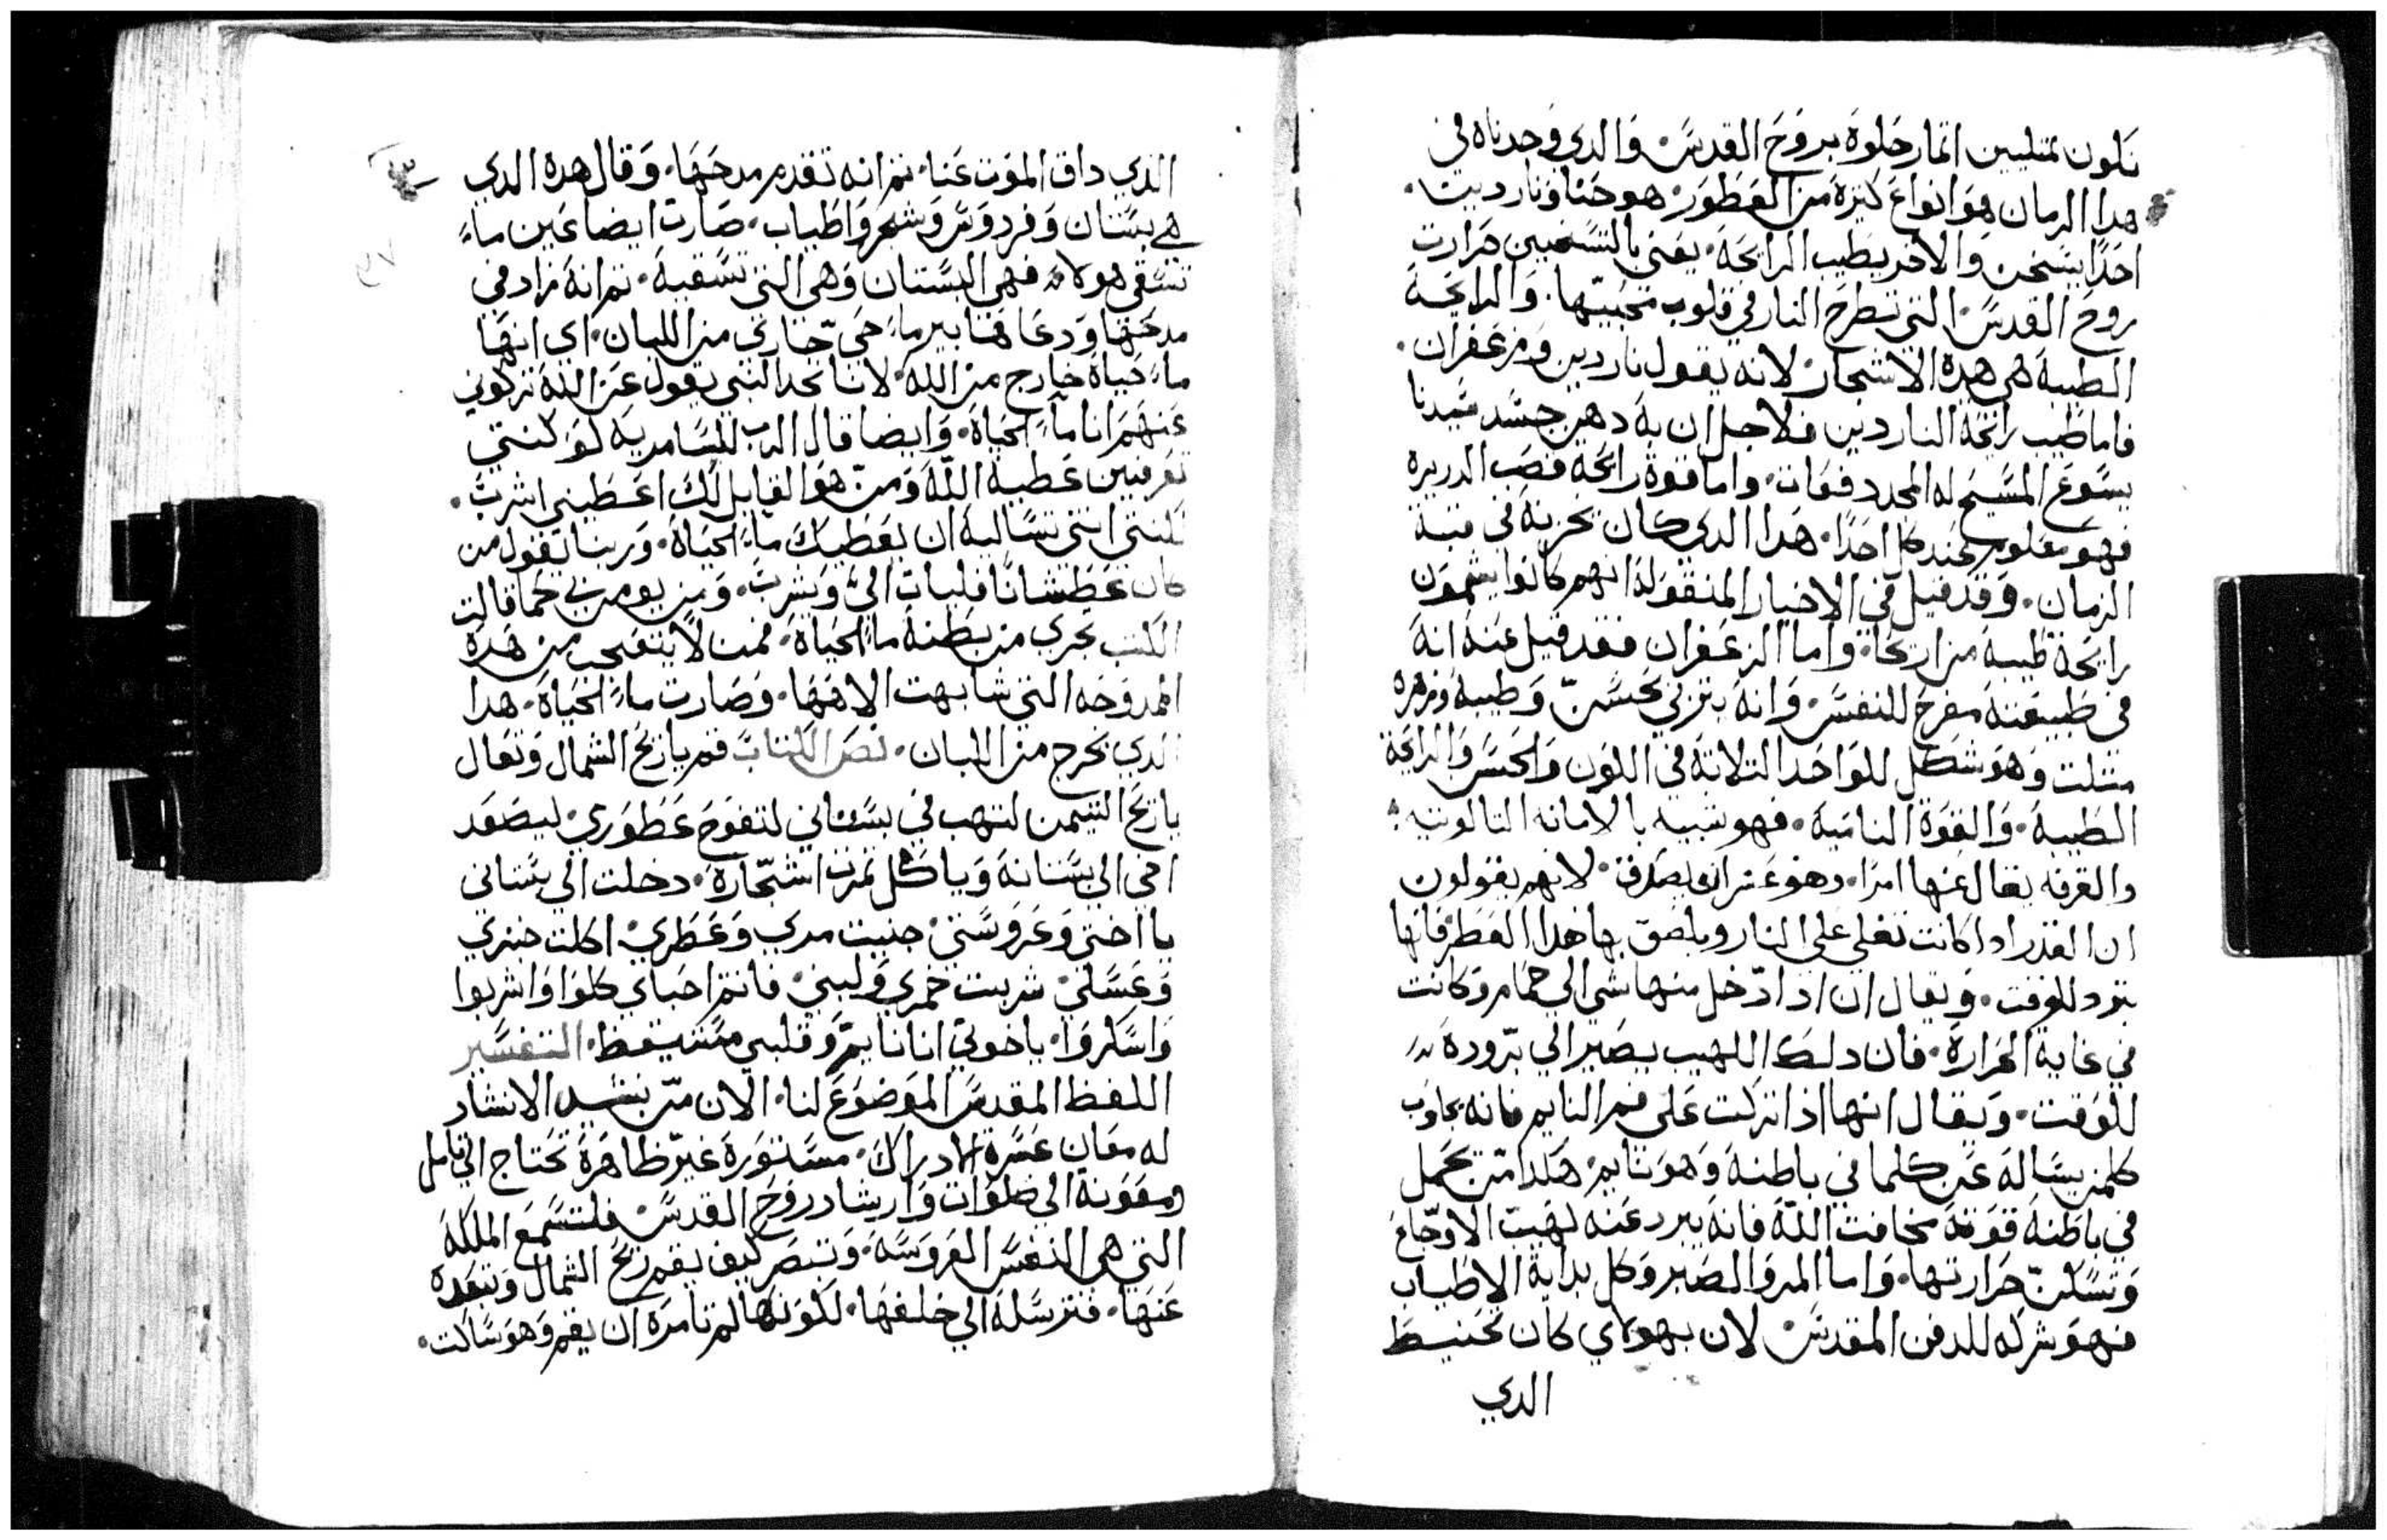 نكون ممتليين اتمار حلوة بروح القدس والدي وجدناه في
هدا الرمان هو انواع كتيرة من العطور هو حنا وناردين
احدا يسخن والاخر يطيب الرايحة يعني بالتسخين حرارت
روح القدس التي تطرح النار في قلوب محبيها والرايحة
الطيبة هي هده الاشجار لانه يقول ناردين وزعفران
فاما طيب رايحة الناردين فلاجل ان به دهن جسد سيدنا
يسوع المسيح له المجد دفعات واما قوة رايحه قصب الدريره
فهو معلوم عند كل احدا هدا الدي كان بخر به في قبة
الزمان وقد قيل في الاخبار المنقولة انهم كانوا يشمون
رايحة طيبة من اريحا واما الزعفران فقد قيل عنه انه
في طبيعته مفرح للنفس وانه يتربي بحسن وطيبة وزهره
متلت وهو شكل للواحد التلاتة في اللون والحس والرايحة
الطيبة والقوة النامية فهو شبيه بالامانه التالوتيه
والقرفه يقال عنها امرا وهو عسر ان يصدق لانهم يقولون
ان القدر ادا كانت تغلي علي النار ويلصق بها هدا العطر فانها
تبرد للوقت ويقال ان ادا دخل منها شي الي حمام وكانت
في غاية الحرارة فان دلك اللهيب يصير الي برودة
للوقت ويقال انها اذا تركت علي فم النايم فانه يجاوب
كلمن يساله عن كلما في باطنه وهو نايم هكدا من يحمل
في باطنه قوة مخافت الله فانه يبرد عنه لهيب الاوجاع
وتسكن حرارتها واما المر والصبر وكل بداية الاطياب
فهو شركه للدفن المقدس لان بهولاي كان تحنيط
الدي
الذي داق الموت عنا تم انه تقدم مدحها وقال هده الدي
هي بستان وفردوس وشجر واطياب صارت ايضا عين ماء
تسقي هولاء فهي البستان وهي التي تسقيه تم انه زاد في
مدحها ودعاها بير ماء حي جاري من اللبان اي انها
ماء حياة خارج من الله لانا نجد النبي يقول عن الله تركوني
عنهم انا ماء الحياة وايضا قال الرب للسامرية لو كنتي
تعرفين عطية الله ومن هو القايل لك اعطيني اشرب
لكنتي انتي تساليه ان يعطيك ماء الحياة وربنا يقول من
كان عطشانا فليات الي ويشرب ومن يومن بي كما قالت
الكتب تجري من بطنه ماء الحياة فمن لا يتعجب من هده
الممدوحه التي شابهت الاهها وصارت ماء الحياة هدا
الدي يخرج من اللبان نص الكتاب قم يا ريح الشمال وتعال
يا ريح التيمن لتهب في بستاني لتفوح عطوري ليصعد
اخي الي بستانه وياكل تمرت اشجاره دخلت الي بستاني
يا اختي وعروستي جنيت مري وعطري اكلت خبزي
وعسلي شربت خمري ولبني فانتم احباي كلوا واشربوا
واسكروا يا خوتي انا نايم وقلبي مستيقظ التفسير
اللفظ المقدس الموضوع لنا الان من نشيد الانشاد
له معان عسرة الادراك مستورة غير ظاهرة تحتاج الي تامل
ومعونة الي صلوات وارشاد روح القدس فلتسمع الملكة
التي هي النفس العروسة وتبصر كيف يقم ريح الشمال وتبعده
عنها فترسله الي خلفها لكونها لم تامره ان يقم وهو ساكت